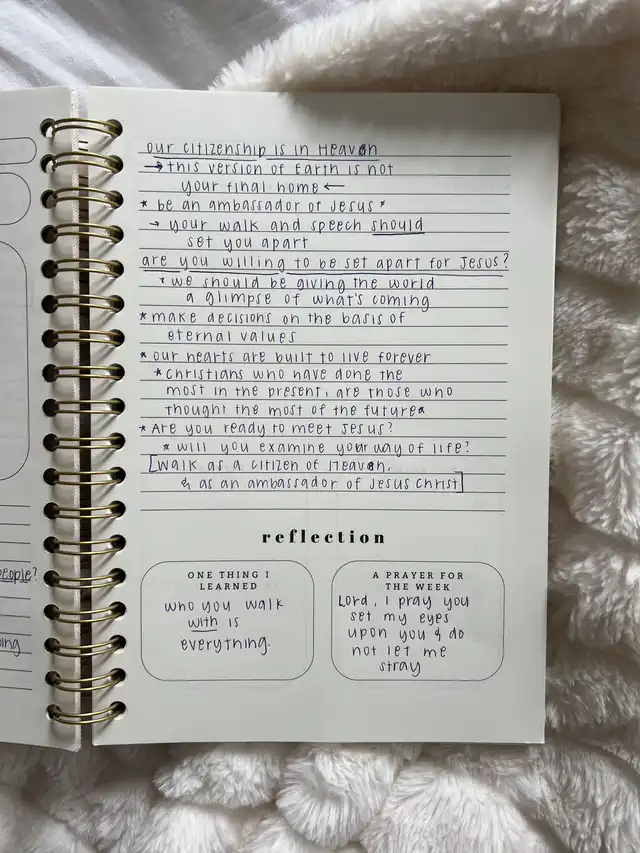 people?
ing
our citizenship is in Heaven
→ this version of Earth is not
your final home ←
* be an ambassador of Jesus *
→ your walk and speech should
set you apart
are you willing to be set apart for Jesus?
* we should be giving the world
a glimpse of what's coming
* make decisions on the basis of
eternal values
* our hearts are built to live forever
* Christians who have done the
most in the present, are those who
thought the most of the future *
* Are you ready to meet Jesus?
* will you examine your way of life?
[walk as a citizen of Heaven,
& as an ambassador of Jesus Christ]
reflection
ONE THING I
LEARNED
who you walk
with is
everything.
A PRAYER FOR
THE WEEK
Lord, I pray you
set my eyes
upon you & do
not let me
stray